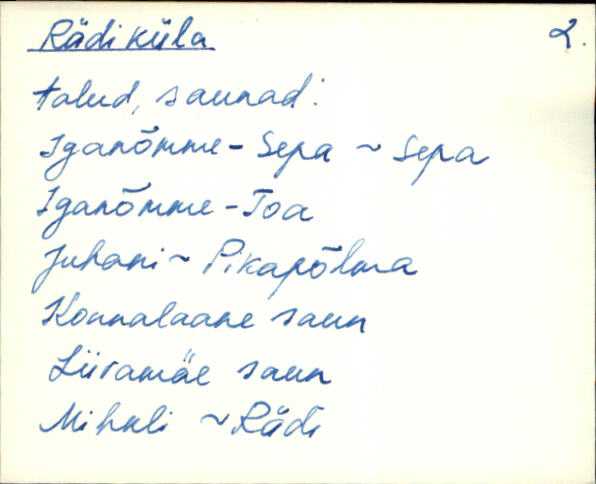 Rädi küla 2.
talud, saunad:
Iganõmme - Sepa ~ Sepa
Iganõmme - Toa
Juhani ~ Pikapõlma
Konnalaane saun
Liiramäe saun
Mihkli ~ Rädi